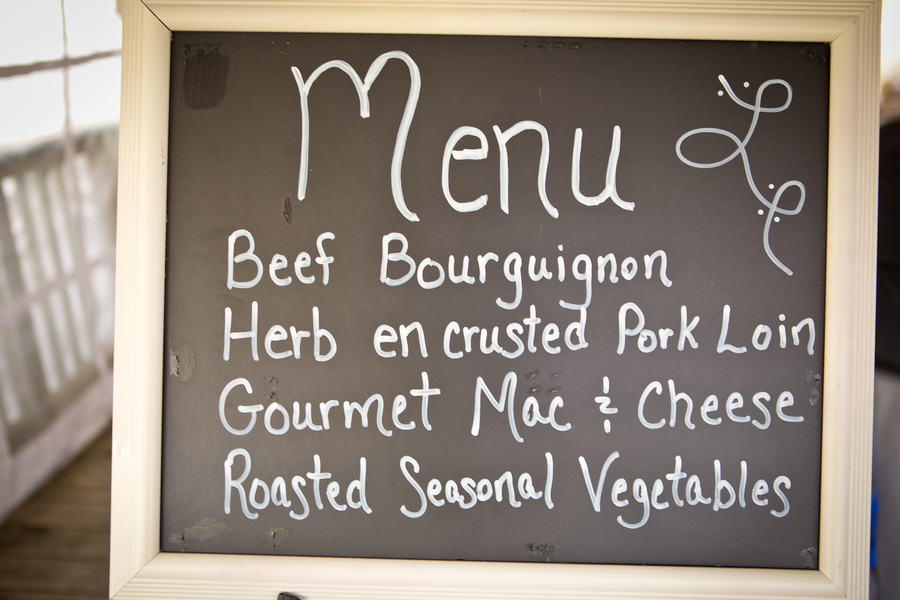 Menu
Beef Bourguignon
Herb en crusted Pork Loin
Gourmet Mac & Cheese
Roasted Seasonal Vegetables